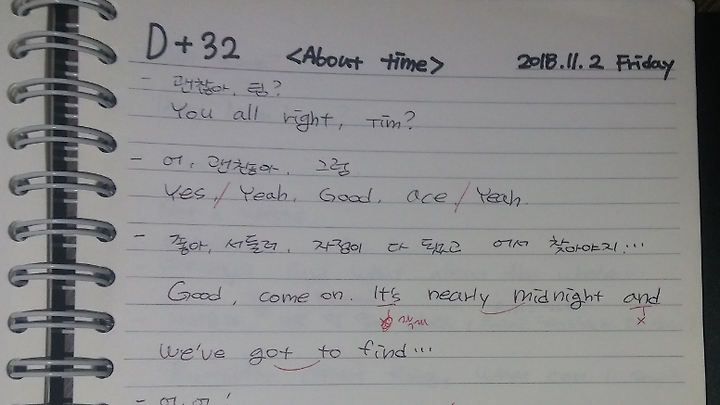 D+32 <About time> 2018.11.2 Friday
- 괜찮아, 팀?
You all right, Tim?
- 어, 괜찮아, 그럼
Yes, / Yeah. Good, ace / Yeah.
- 좋아, 서둘러, 자정이 다 됐고 어서 찾아야지...
Good, come on. It's nearly midnight and
x
we've got to find...
- 어, 어